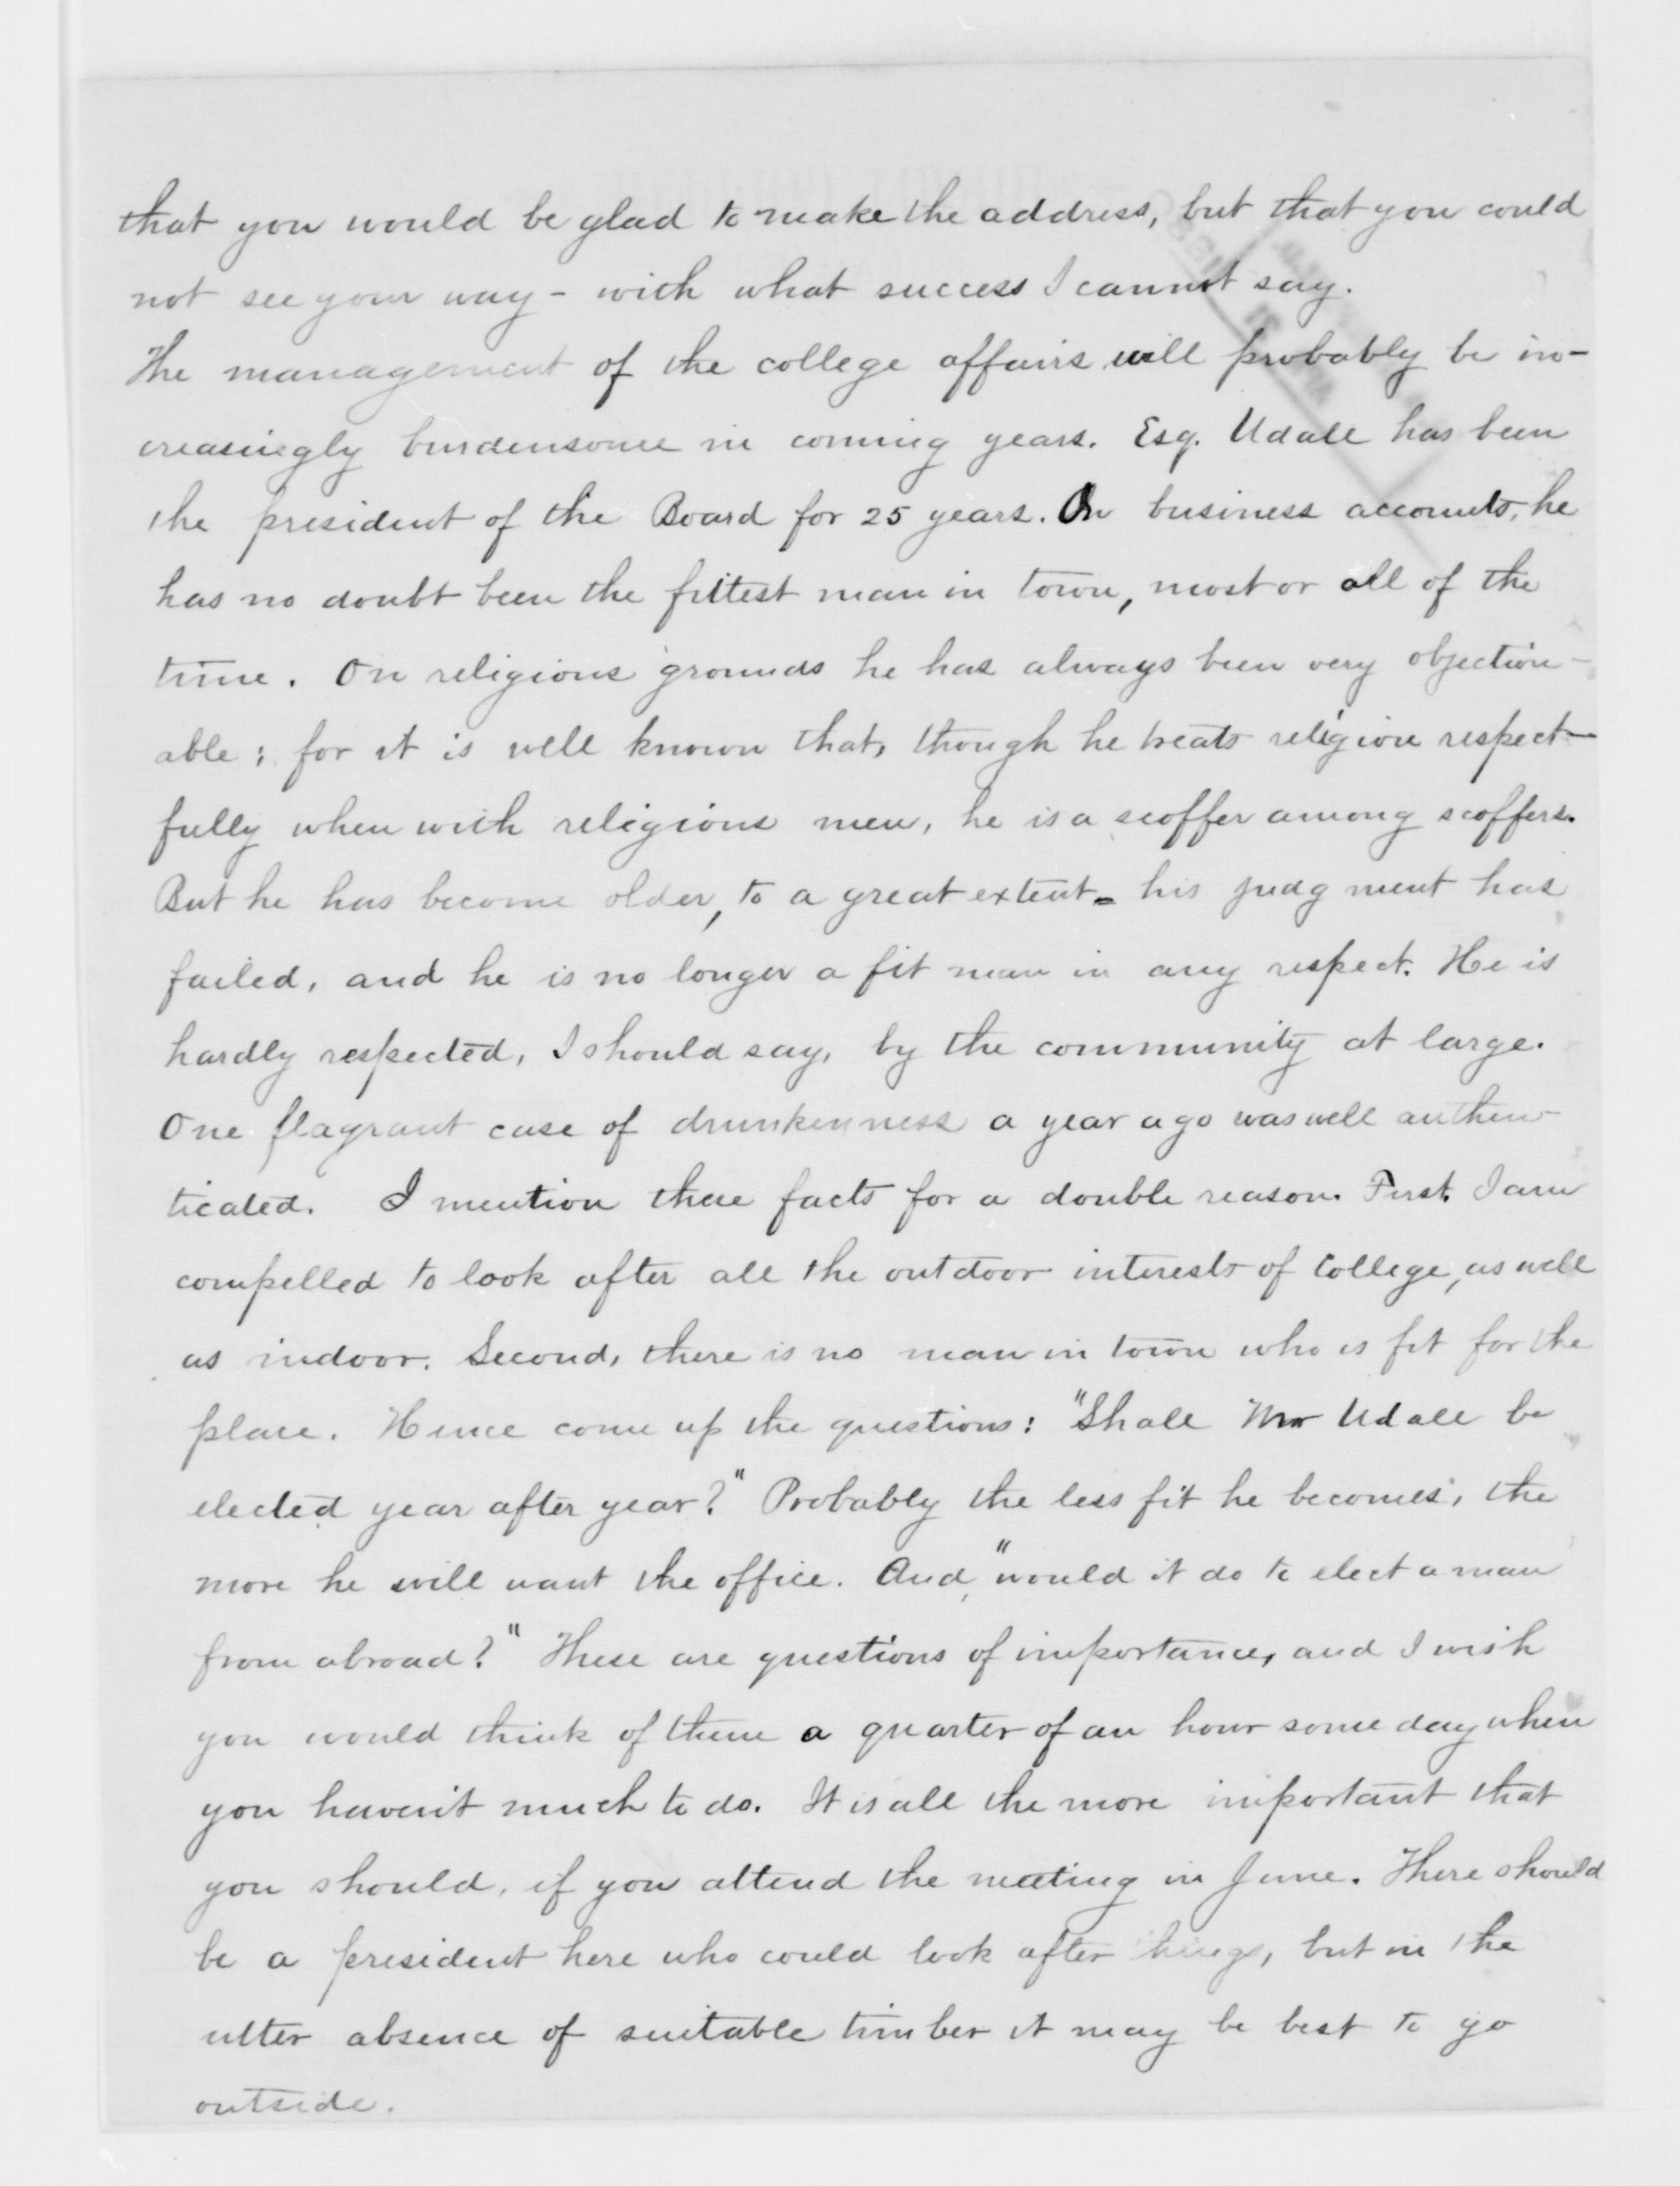 that you would be glad to make the address, but that you could
not see your way - with what success I cannot say.
The management of the college affairs will probably be in-
creasingly burdensome in coming years. Esq. Udall has been
the president of the Board for 25 years. On business accounts, he
has no doubt been the fittest man in town, most or all of the
time. On religious grounds he has always been very objection-
able; for it is well known that, though he treats religion respect-
fully when with religious men, he is a scoffer among scoffers.
But he has become older, to a great extent - his judgment has
failed, and he is no longer a fit man in any respect. He is
hardly respected, I should say, by the community at large.
One flagrant case of drunkenness a year ago was well authen-
ticated. I mention these facts for a double reason. First, I am
compelled to look after all the outdoor interests of College, as well
as indoor. Second, there is no man in town who is fit for the
place. Hence come up the questions: "Shall Mr Udall be
elected year after year?" Probably the less fit he becomes, the
more he will want the office. And, "would it do to elect a man
from abroad?" These are questions of importance, and I wish
you would think of them a quarter of an hour some day when
you haven't much to do. It is all the more important that
you should, if you attend the meeting in June. There should
be a president here who could look after things, but in the
utter absence of suitable timber it may be best to go
outside.